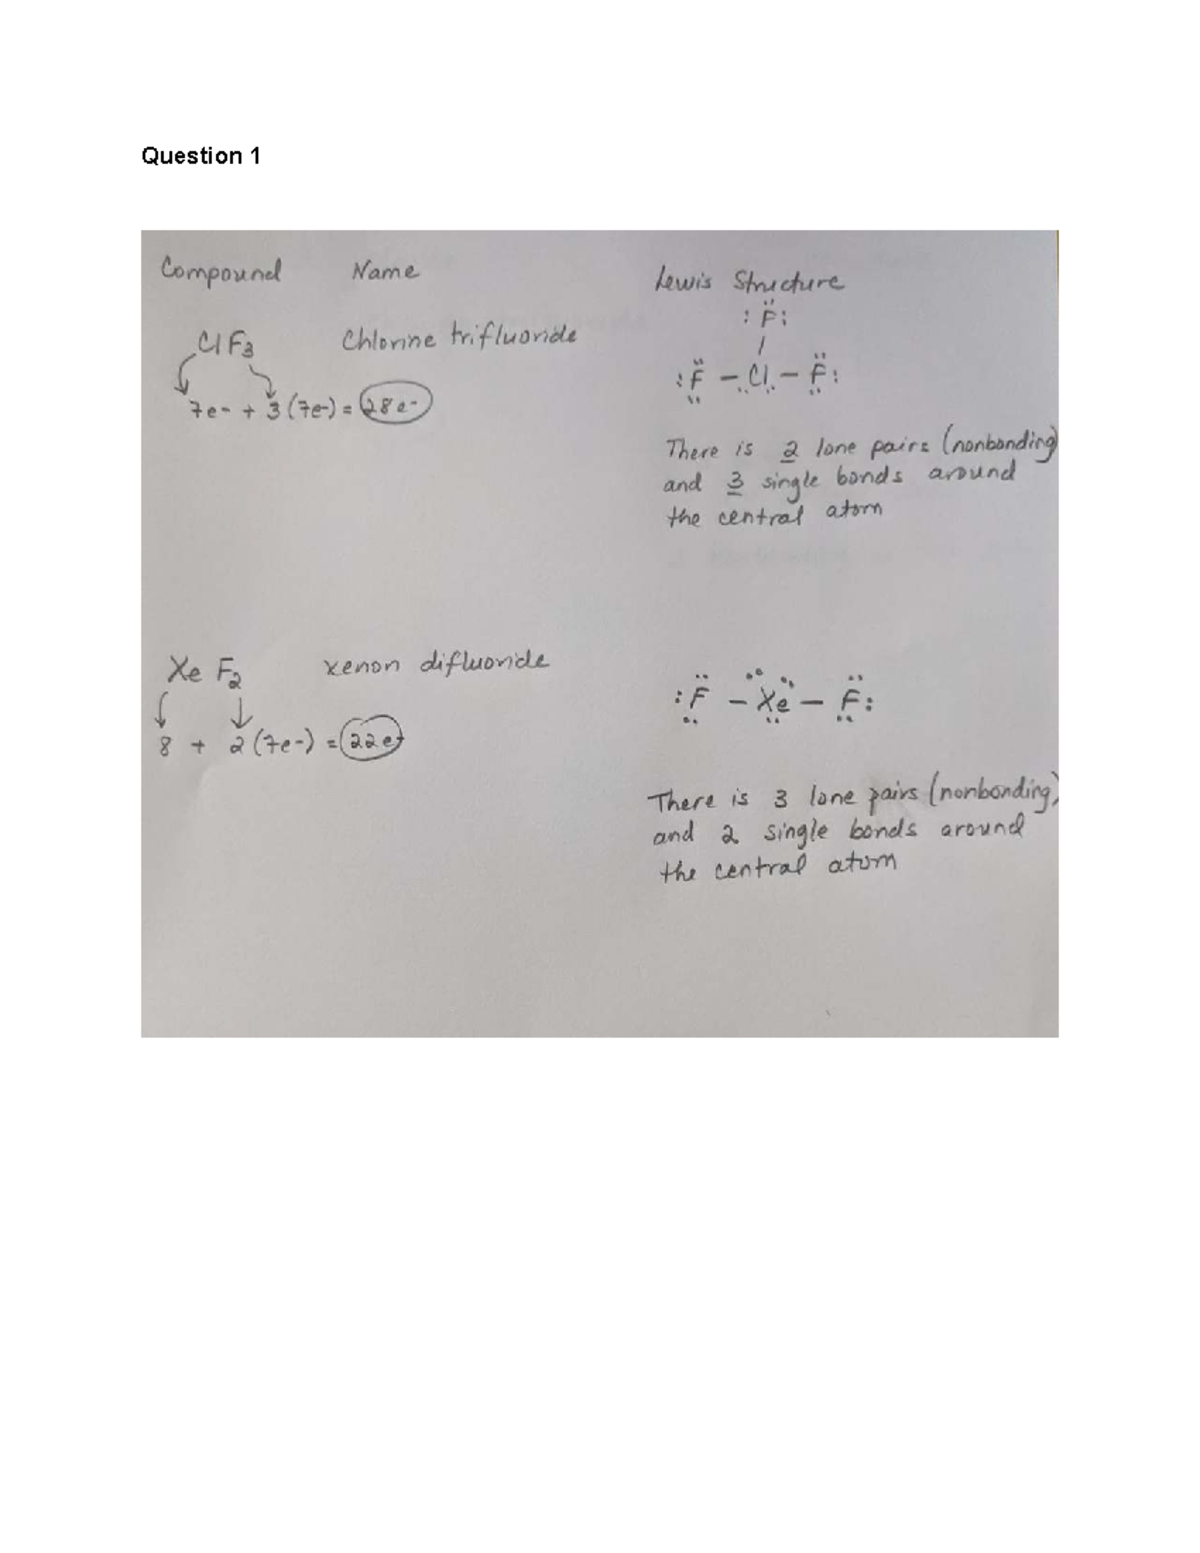 Question 1
Compound Name Lewis Structure
:F̈:
ClF₃ Chlorine trifluoride
:F̤̈ - C̤̤l - F̤̈:
7e- + 3(7e-) = 28e-
There is 2 lone pairs (nonbonding)
and 3 single bonds around
the central atom
XeF₂ xenon difluoride
:F̤̈ - Xe - F̤̈:
8 + 2(7e-) = 22e-
There is 3 lone pairs (nonbonding)
and 2 single bonds around
the central atom